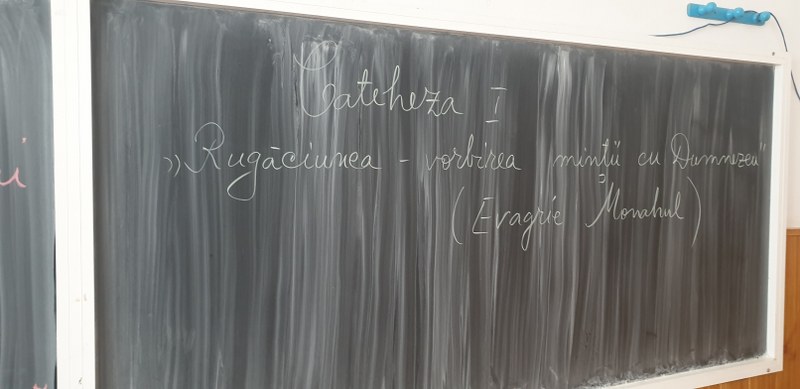 Cateheza I
„Rugăciunea - vorbirea minții cu Dumnezeu"
(Evagrie Monahul)